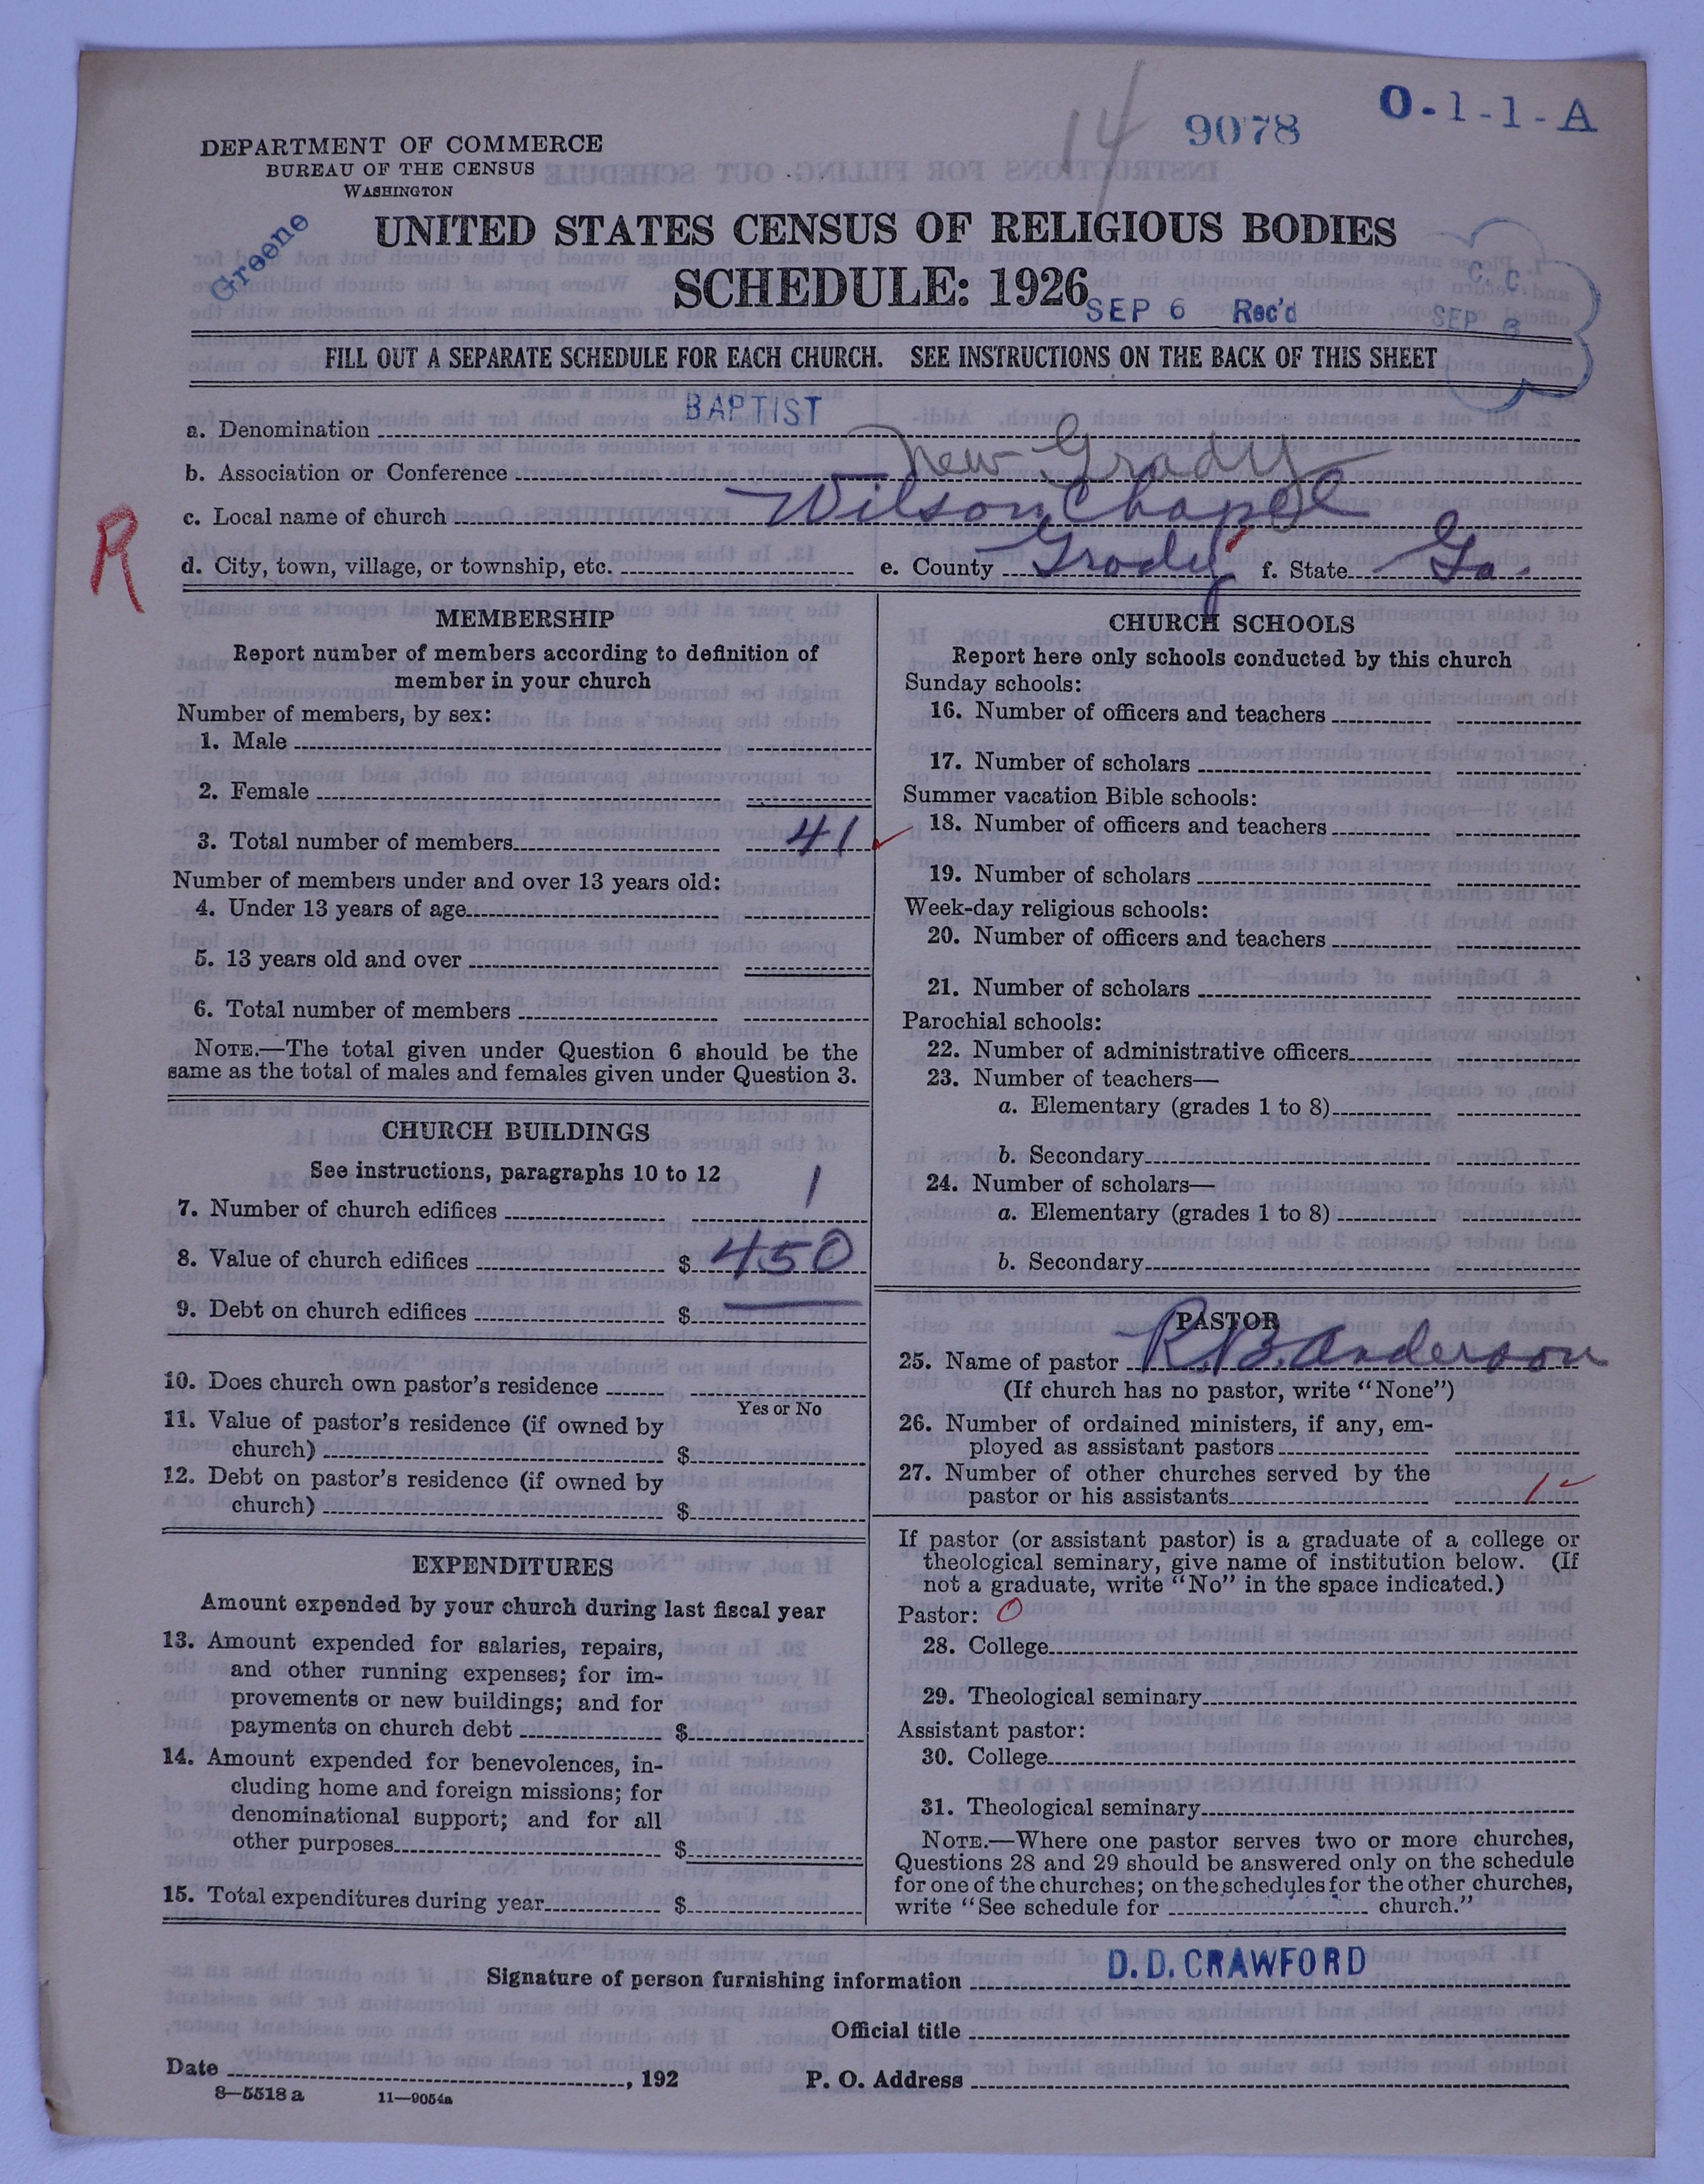 14
9078
O-1-1-A
DEPARTMENT OF COMMERCE
BUREAU OF THE CENSUS
WASHINGTON
Greene
UNITED STATES CENSUS OF RELIGIOUS BODIES
SCHEDULE: 1926
SEP 6 Rec'd
C. C.
SEP 8
FILL OUT A SEPARATE SCHEDULE FOR EACH CHURCH. SEE INSTRUCTIONS ON THE BACK OF THIS SHEET
a. Denomination BAPTIST
b. Association or Conference New Grady
c. Local name of church Wilson Chapel
R
d. City, town, village, or township, etc. e. County Grady f. State Ga.
MEMBERSHIP
Report number of members according to definition of
member in your church
Number of members, by sex:
1. Male
2. Female
3. Total number of members 41
Number of members under and over 13 years old:
4. Under 13 years of age
5. 13 years old and over
6. Total number of members
NOTE.—The total given under Question 6 should be the
same as the total of males and females given under Question 3.
CHURCH BUILDINGS
See instructions, paragraphs 10 to 12
7. Number of church edifices 1
8. Value of church edifices $ 450
9. Debt on church edifices $
10. Does church own pastor's residence
Yes or No
11. Value of pastor's residence (if owned by
church) $
12. Debt on pastor's residence (if owned by
church) $
EXPENDITURES
Amount expended by your church during last fiscal year
13. Amount expended for salaries, repairs,
and other running expenses; for im-
provements or new buildings; and for
payments on church debt $
14. Amount expended for benevolences, in-
cluding home and foreign missions; for
denominational support; and for all
other purposes $
15. Total expenditures during year $
CHURCH SCHOOLS
Report here only schools conducted by this church
Sunday schools:
16. Number of officers and teachers
17. Number of scholars
Summer vacation Bible schools:
18. Number of officers and teachers
19. Number of scholars
Week-day religious schools:
20. Number of officers and teachers
21. Number of scholars
Parochial schools:
22. Number of administrative officers
23. Number of teachers—
a. Elementary (grades 1 to 8)
b. Secondary
24. Number of scholars—
a. Elementary (grades 1 to 8)
b. Secondary
PASTOR
25. Name of pastor R. B. Anderson
(If church has no pastor, write "None")
26. Number of ordained ministers, if any, em-
ployed as assistant pastors
27. Number of other churches served by the
pastor or his assistants 1
If pastor (or assistant pastor) is a graduate of a college or
theological seminary, give name of institution below. (If
not a graduate, write "No" in the space indicated.)
Pastor: 0
28. College
29. Theological seminary
Assistant pastor:
30. College
31. Theological seminary
NOTE.—Where one pastor serves two or more churches,
Questions 28 and 29 should be answered only on the schedule
for one of the churches; on the schedules for the other churches,
write "See schedule for church."
Signature of person furnishing information D. D. CRAWFORD
Official title
Date , 192 P. O. Address
8—5518 a 11—9054a